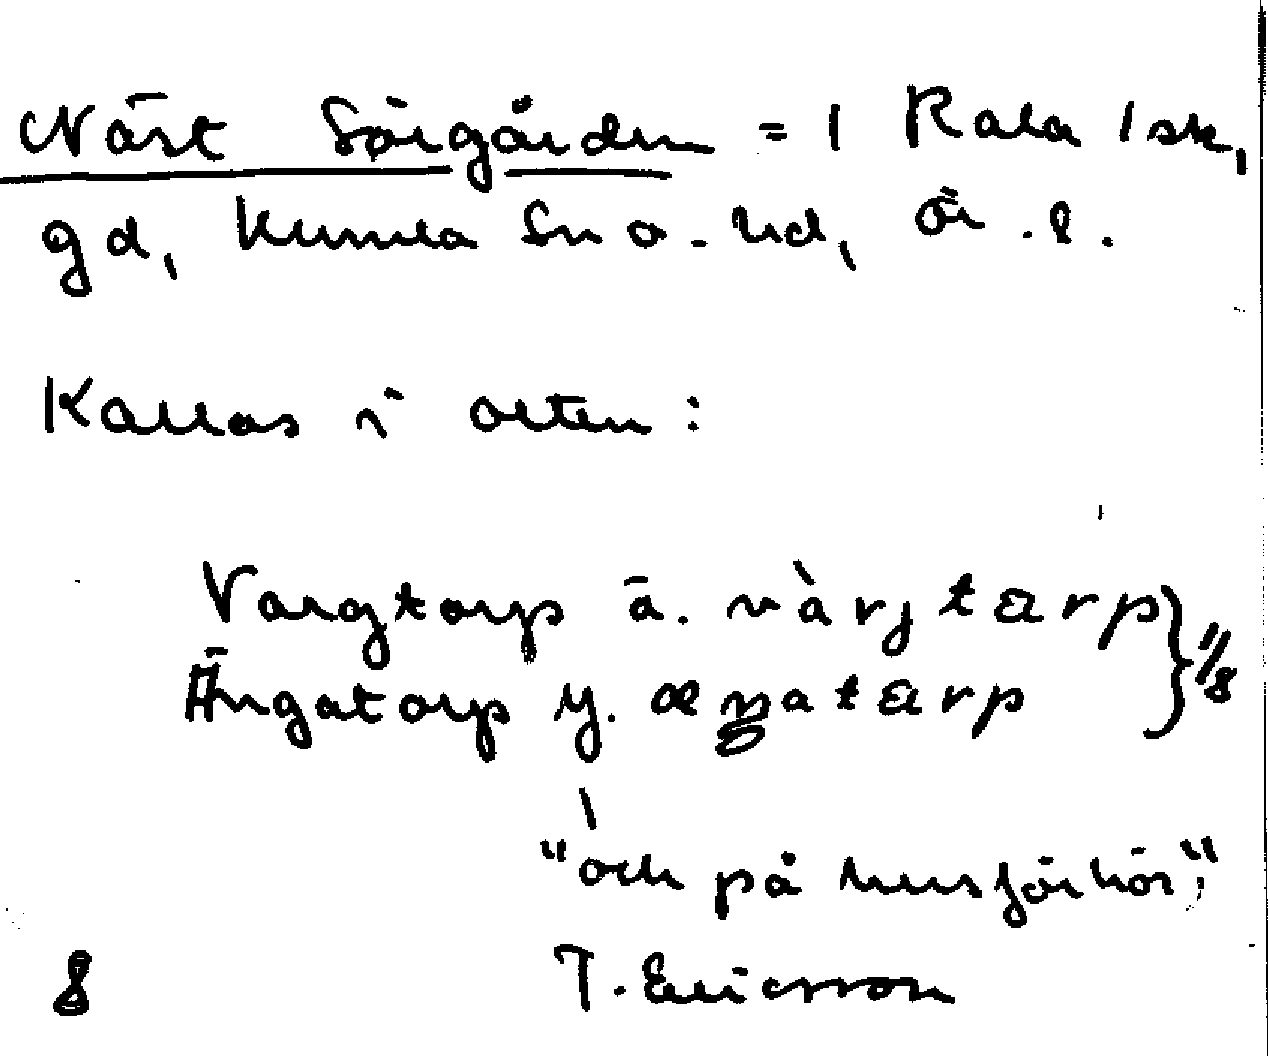 Näst Sörgården = 1 Rala 1 sk,
gd, Kumla sn o. hd, Ör. l.
Kallas i orten:
Vargtorp ä. vàrjtarp } 11/8
Ängatorp y. æŋatarp
"och på husförhör,"
8 T. Ericsson